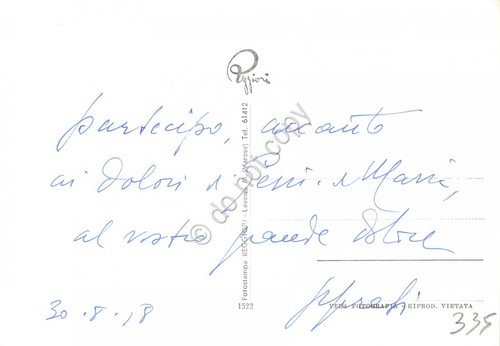 Reggiori
partecipo, accanto
ai dolori di Gesù e Maria,
al vostro grande dolore
30 · 8 · 78
Fotostampa REGGIORI - Laveno (Varese) Tel. 61412
1522
VERA FOTOGRAFIA - RIPROD. VIETATA
335
do not copy